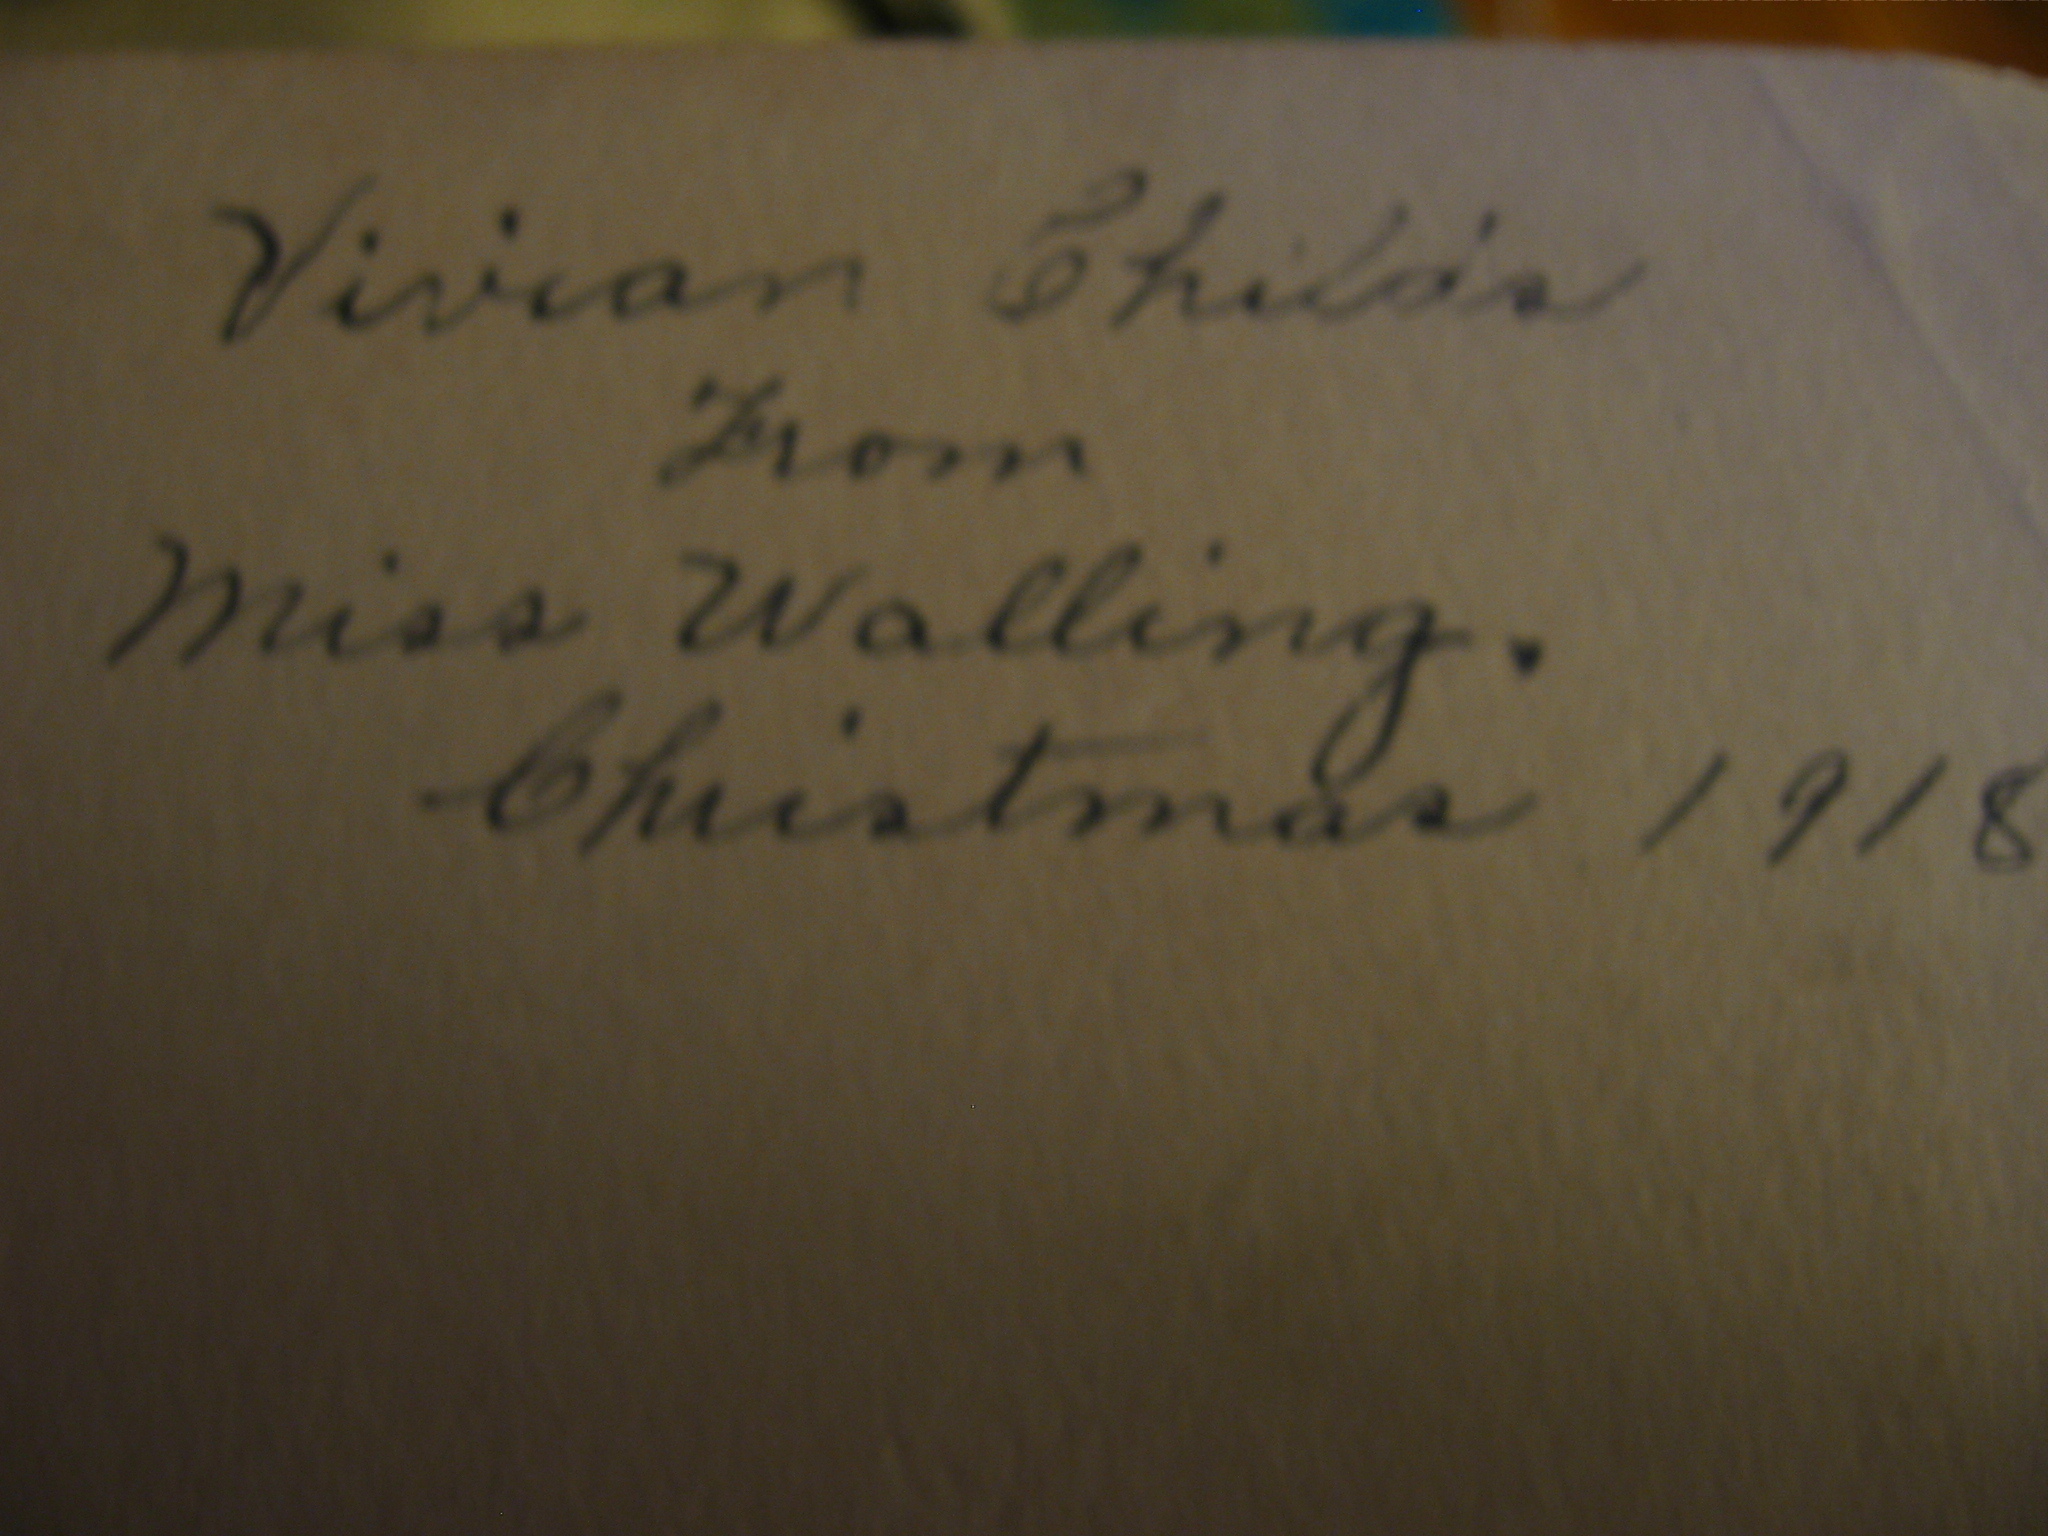 Vivian Childs
From
Miss Walling.
Christmas 1918